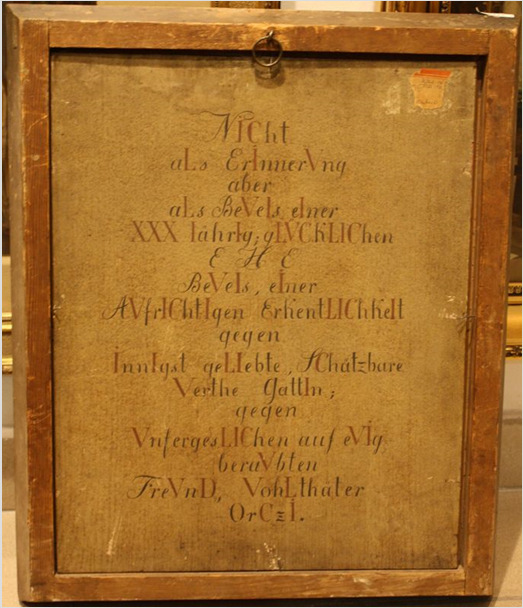 NICht
aLs ErInnerVng
aber
aLs BeVeIs eIner
XXX IährIg; gLVCKLIChen
E H E
BeVeIs, eIner
AVfrIChtIgen ErkentLIChKeIt
gegen
InnIgst geLIebte, SChätzbare
Verthe GattIn;
gegen
VnfergesLIChen auf eVIg
beraVbten
FreVnD, VohLthäter
OrCzI.